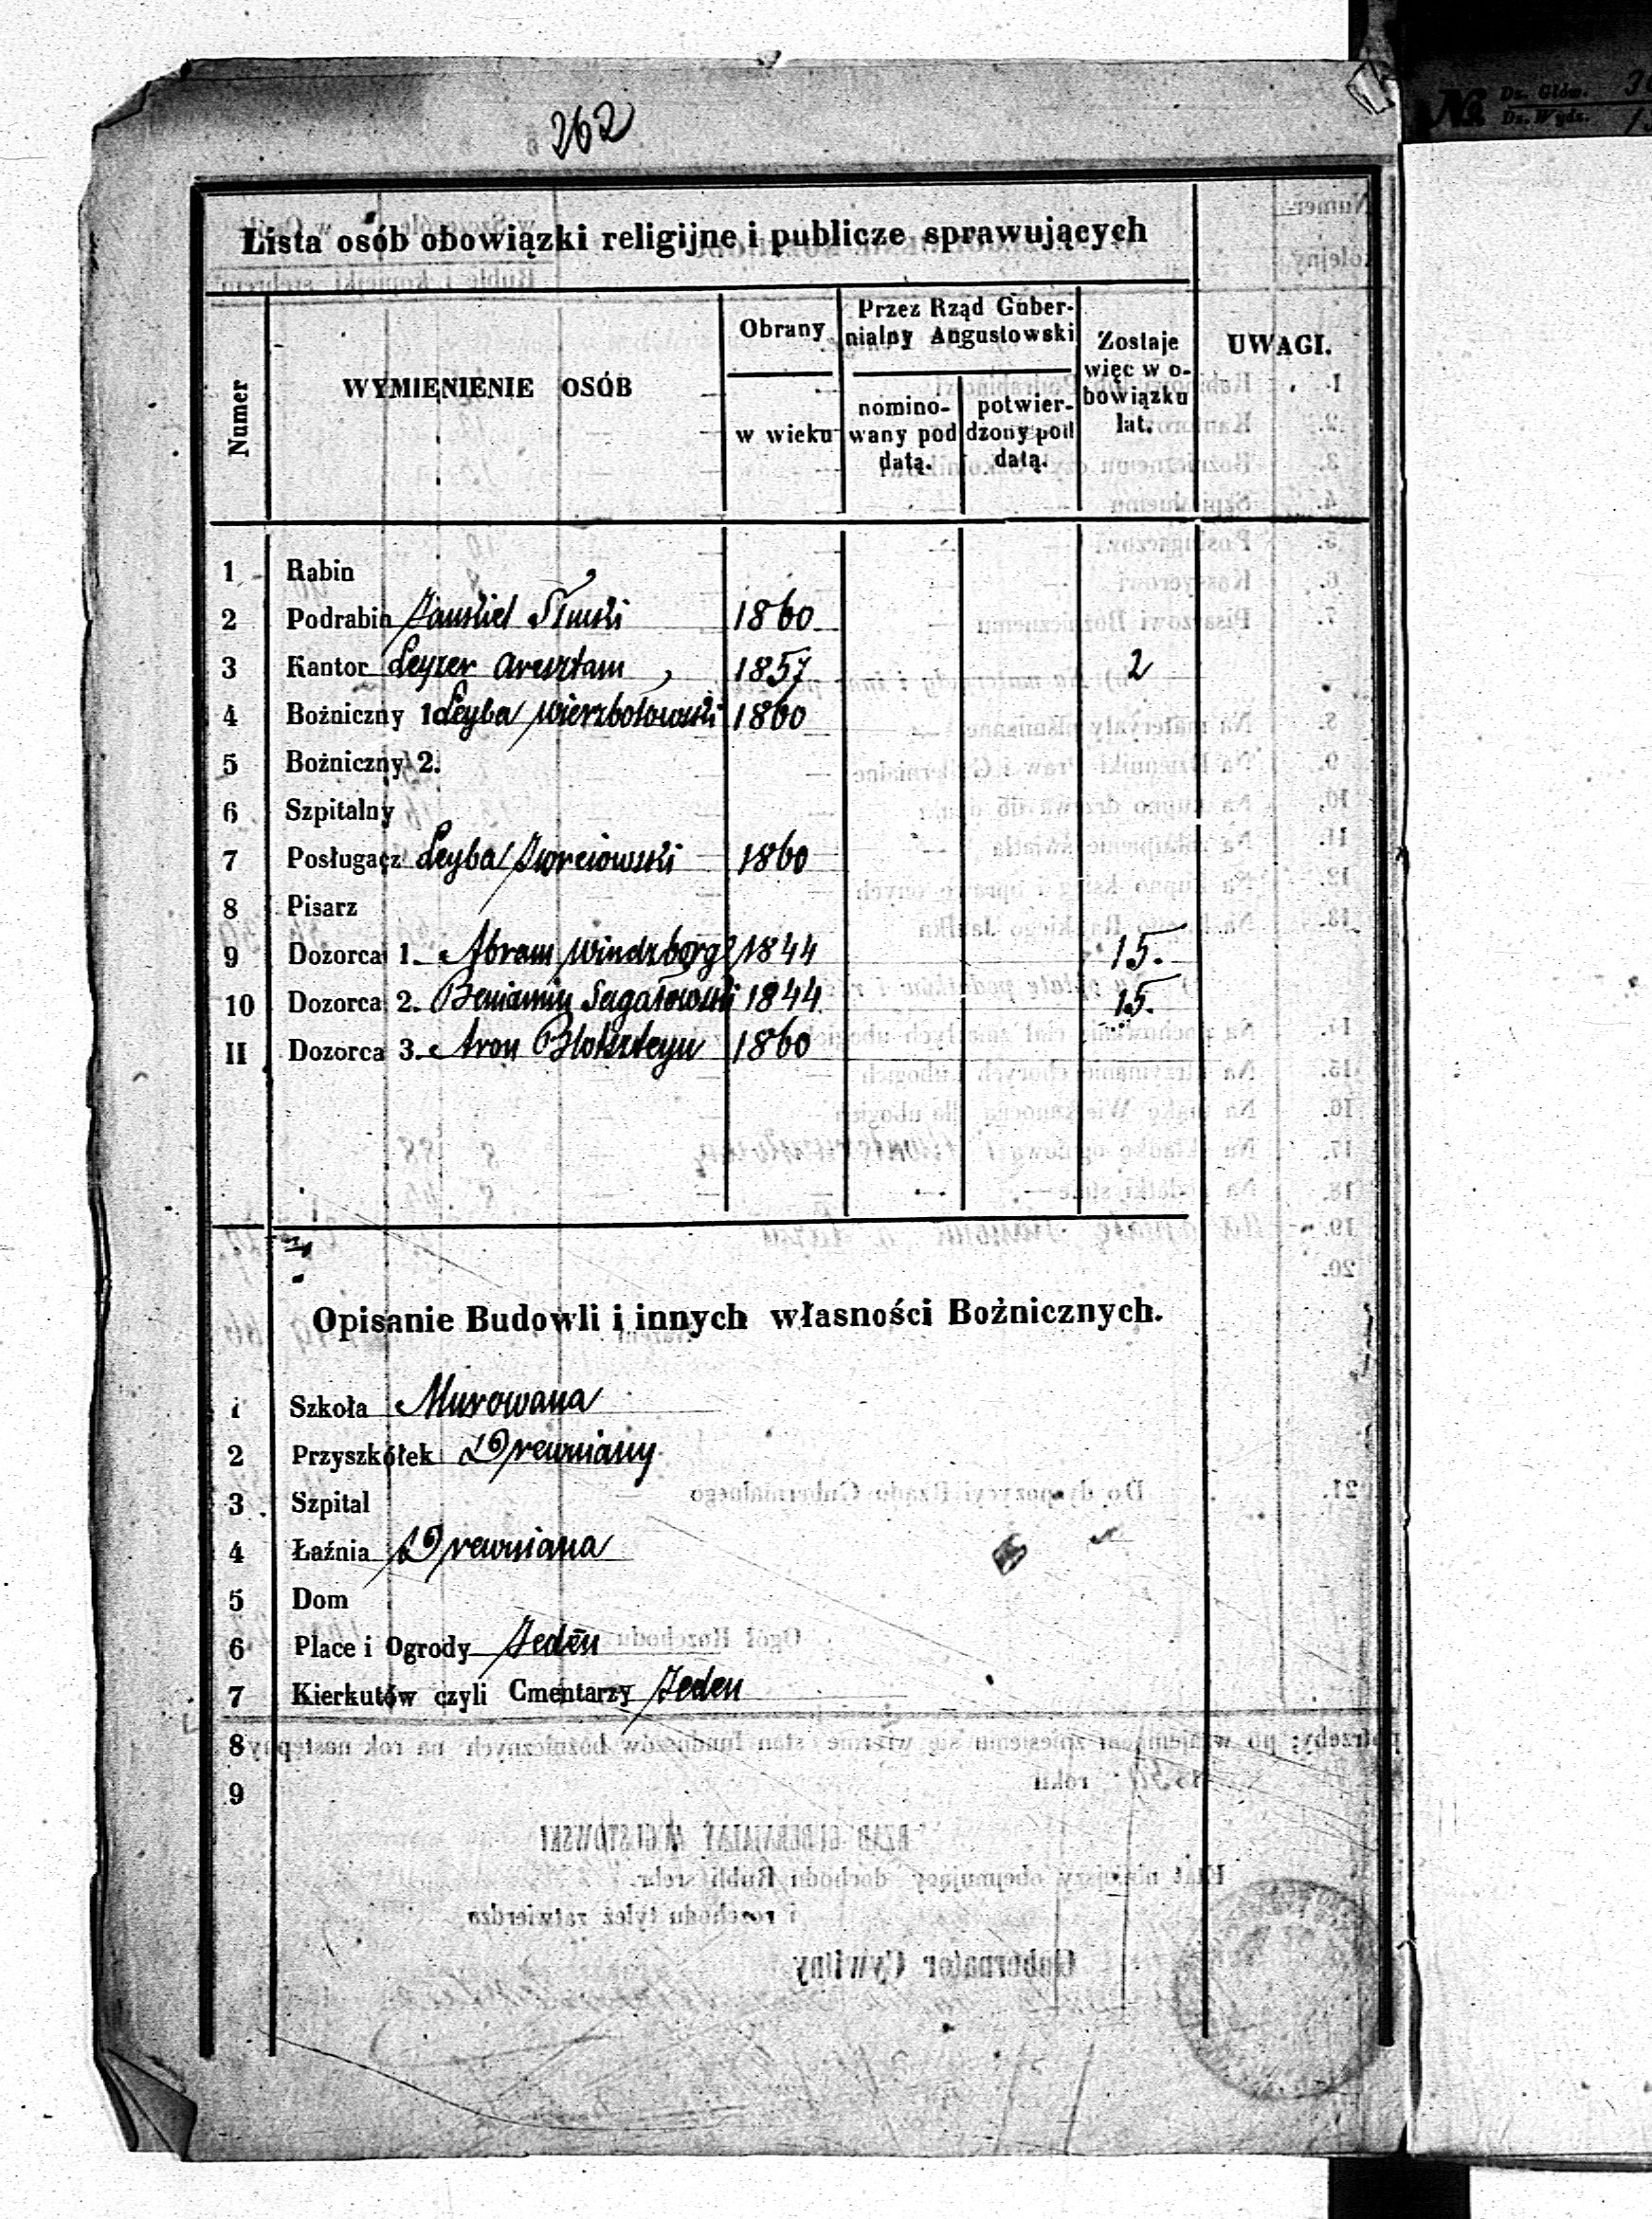 262
Lista osób obowiązki religijne i publicze sprawujących
Numer
WYMIENIENIE OSÓB
Obrany
w wieku
Przez Rząd Guber-
nialny Augustowski
nomino-
wany pod
datą.
potwier-
dzony pod
datą.
Zostaje
więc w o-
bowiązku
lat.
UWAGI.
1 Rabin
2 Podrabin Jankiel Słucki 1860
3 Kantor Leyzer 1857 2
4 Bożniczny 1 Leyba Wierzbołowski 1860
5 Bożniczny 2.
6 Szpitalny
7 Posługacz Leyba 1860
8 Pisarz
9 Dozorca 1. Abram Windzberg 1844 15.
10 Dozorca 2. Beniamin 1844 15.
11 Dozorca 3. Aron 1860
Opisanie Budowli i innych własności Bożnicznych.
1 Szkoła Murowana
2 Przyszkółek Drewniany
3 Szpital
4 Łaźnia Drewniana
5 Dom
6 Place i Ogrody Jeden
7 Kierkutów czyli Cmentarzy Jeden
8
9
No.
Dz. Głów.
Dz. Wydz.